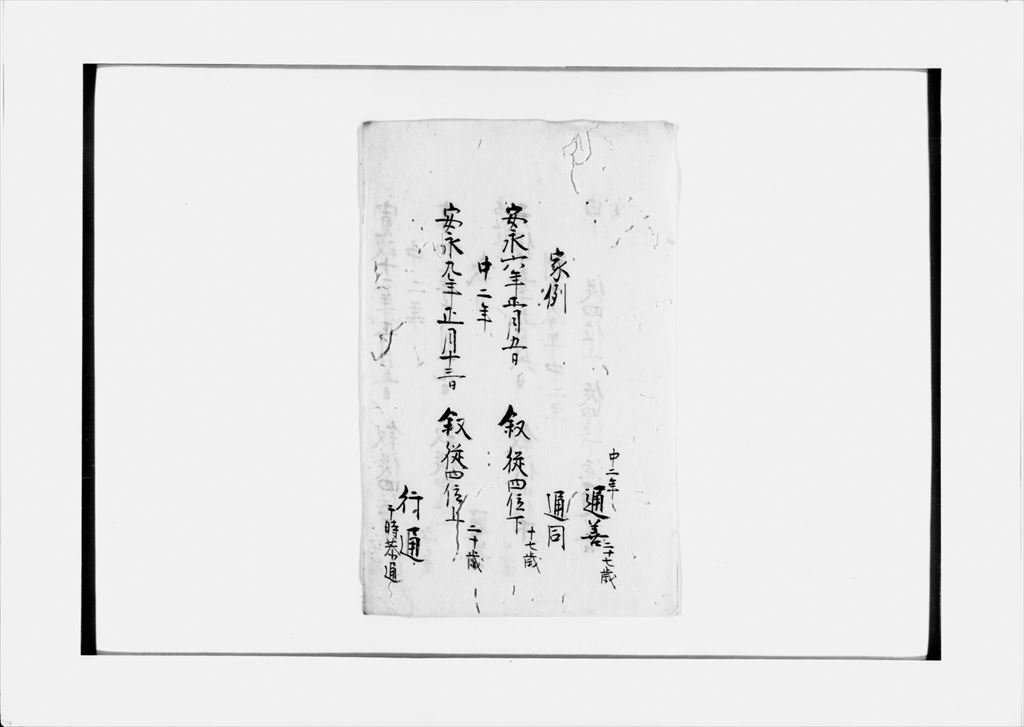 中二年
通善 二十七歳
家例
通同
安永六年正月五日 叙従四位下 十七歳
中二年
安永九年正月十三日 叙従四位上 二十歳
行通
于時恭通